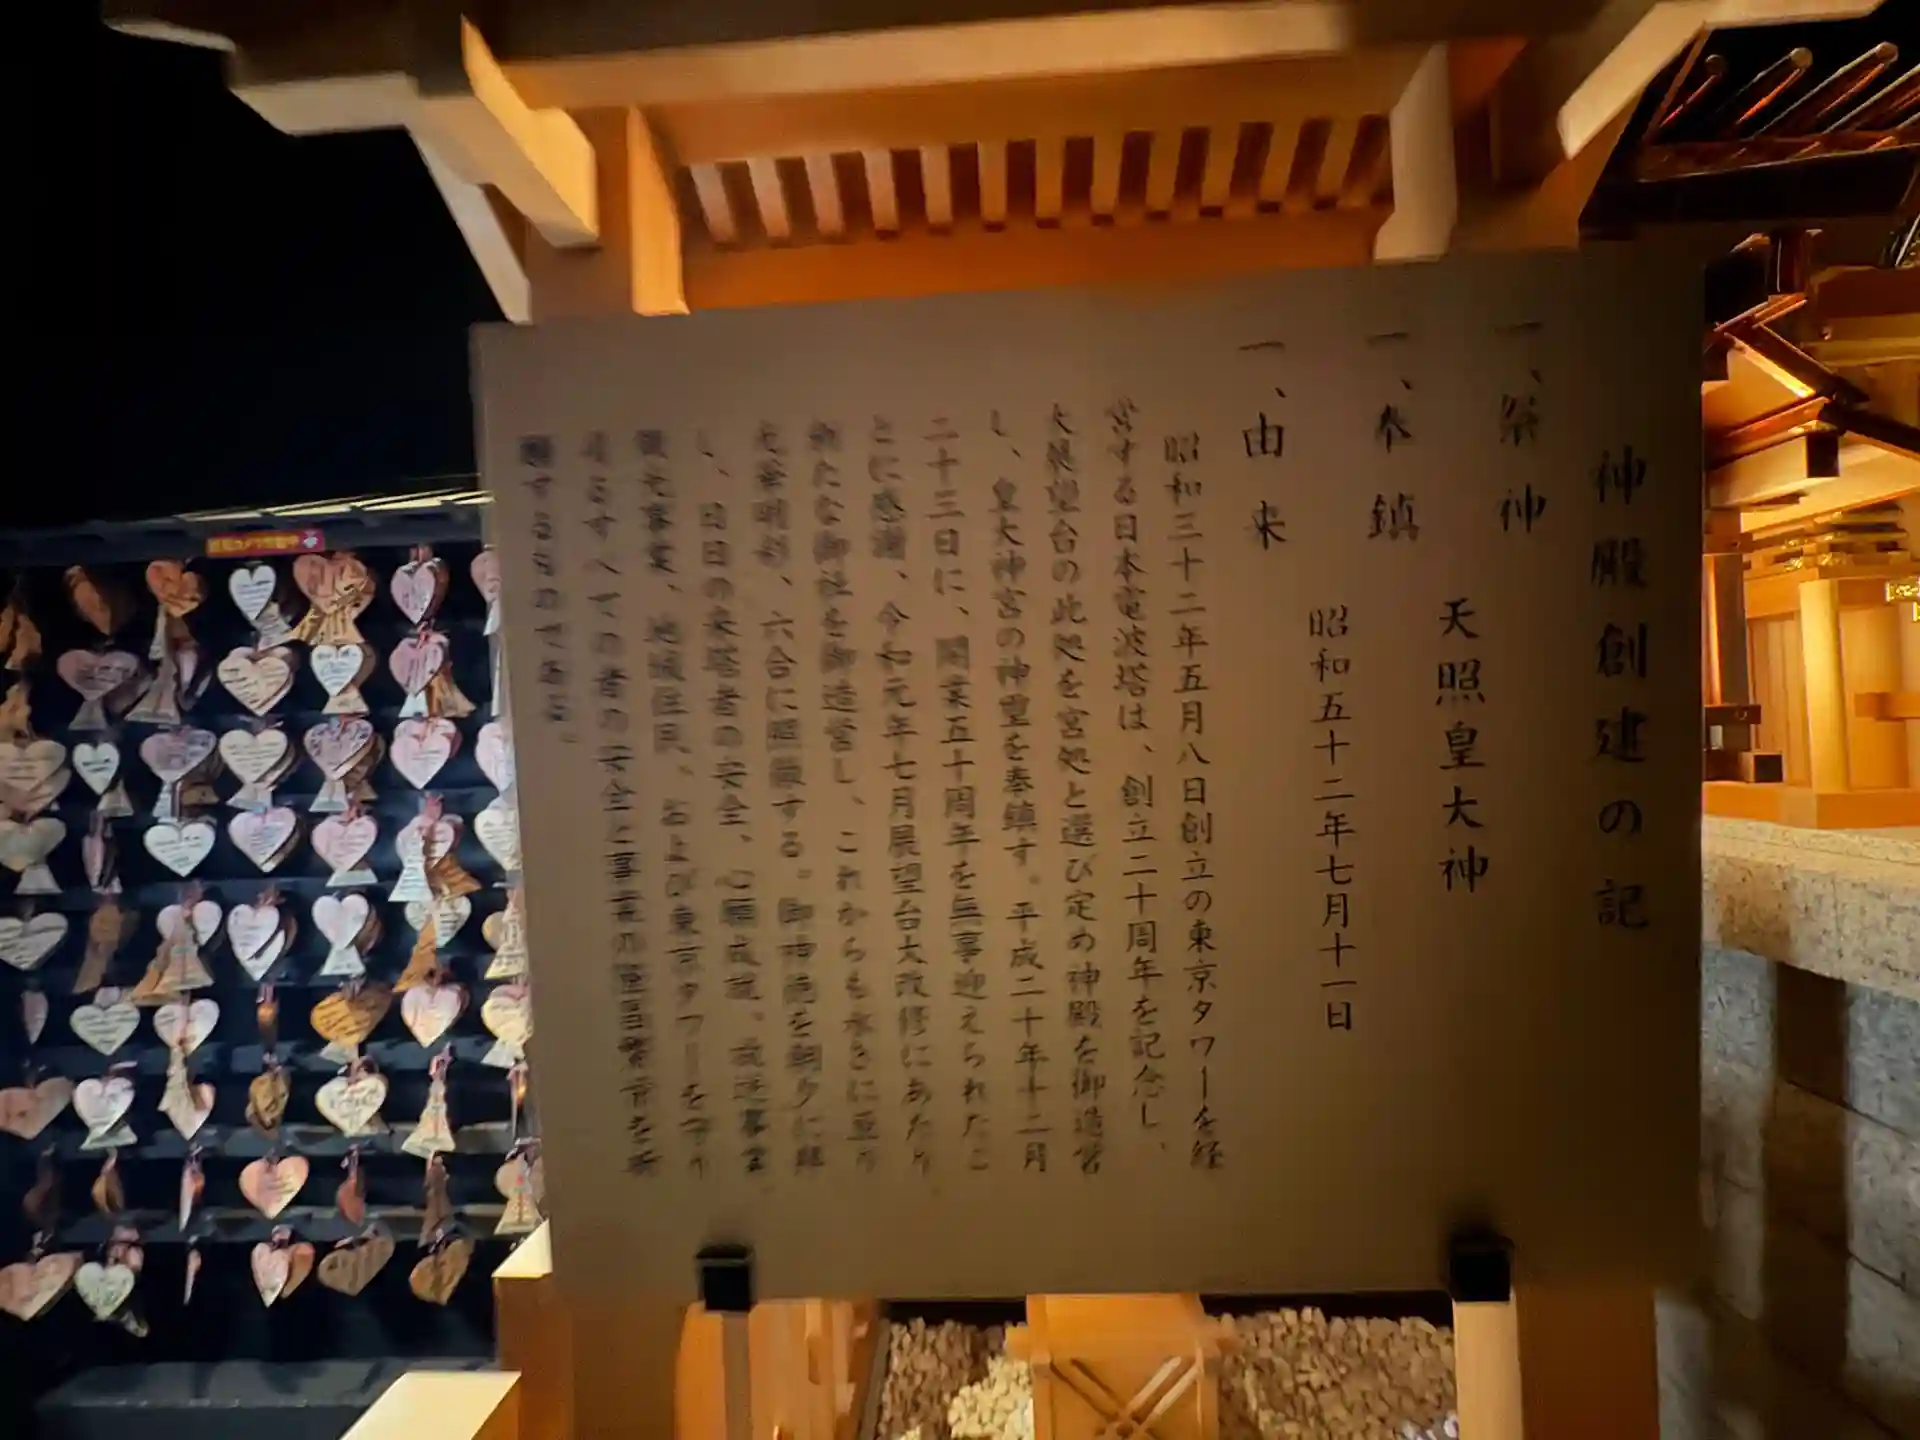 神殿創建の記
一、祭神
天照皇大神
一、奉鎮
昭和五十二年七月十一日
一、由来
昭和三十二年五月八日創立の東京タワーを経
営する日本電波塔は、創立二十周年を記念し、
大展望台の此処を宮処と選び定め神殿を御造営
し、皇大神宮の神璽を奉鎮す。平成二十年十二月
二十三日に、開業五十周年を無事迎えられたこ
とに感謝、今和元年七月展望台大改修にあたり、
新たな御社を御造営し、これからも永きに亘り
光華明彩、六合に照徹する。御神徳を朝夕に拝
し、日日の来塔者の安全、心願成就。放送事業、
観光事業、地域住民、および東京タワーを守り
するすべての者の安全と事業の繁栄を祈
願するものである。